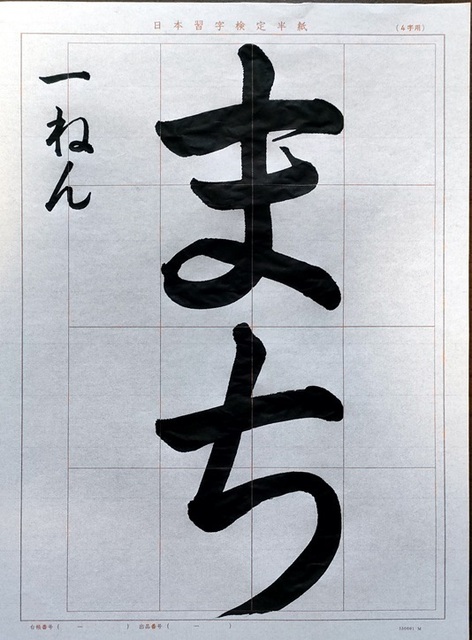 日本習字検定半紙
(4字用)
まち
一ねん
合格番号 ( ー ) 出品番号 ( ー )